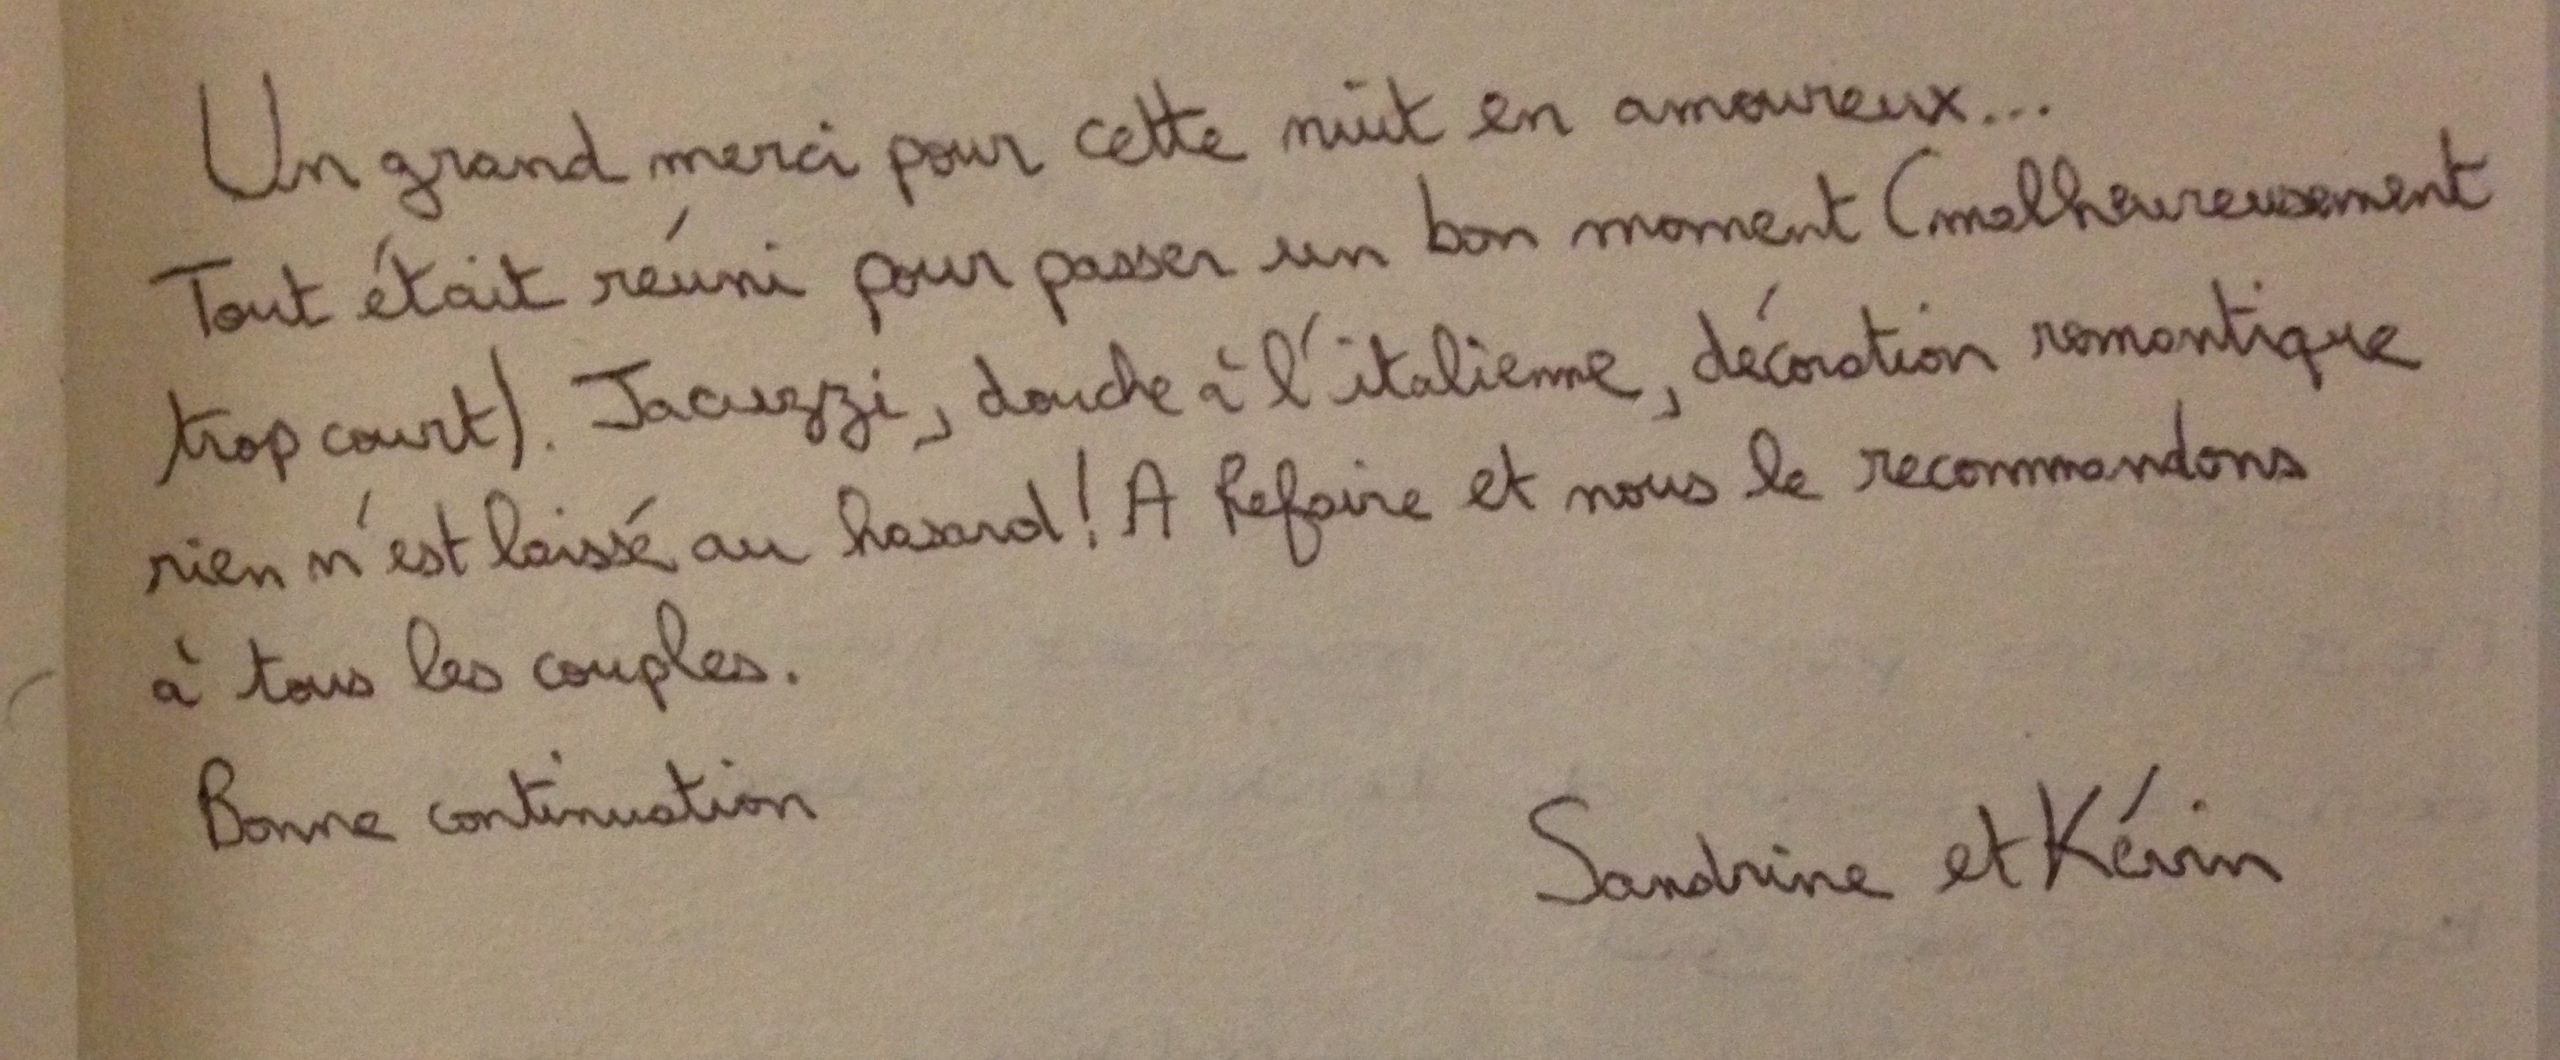 Un grand merci pour cette nuit en amoureux...
Tout était réuni pour passer un bon moment (malheureusement
trop court). Jacuzzi, douche à l'italienne, décoration romantique
rien n'est laissé au hasard! A Refaire et nous le recommandons
à tous les couples.
Bonne continuation
Sandrine et Kévin